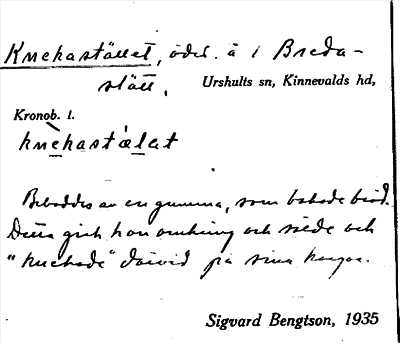 Knehastället, öde. å i Breda-
ställ.
Urshults sn, Kinnevalds hd,
Kronob. l.
knehastälat
Beboddes av en gumma, som bakade bröd.
Detta gick hon omkring och sålde och
"knehade" därvid på sina korgar.
Sigvard Bengtson, 1935